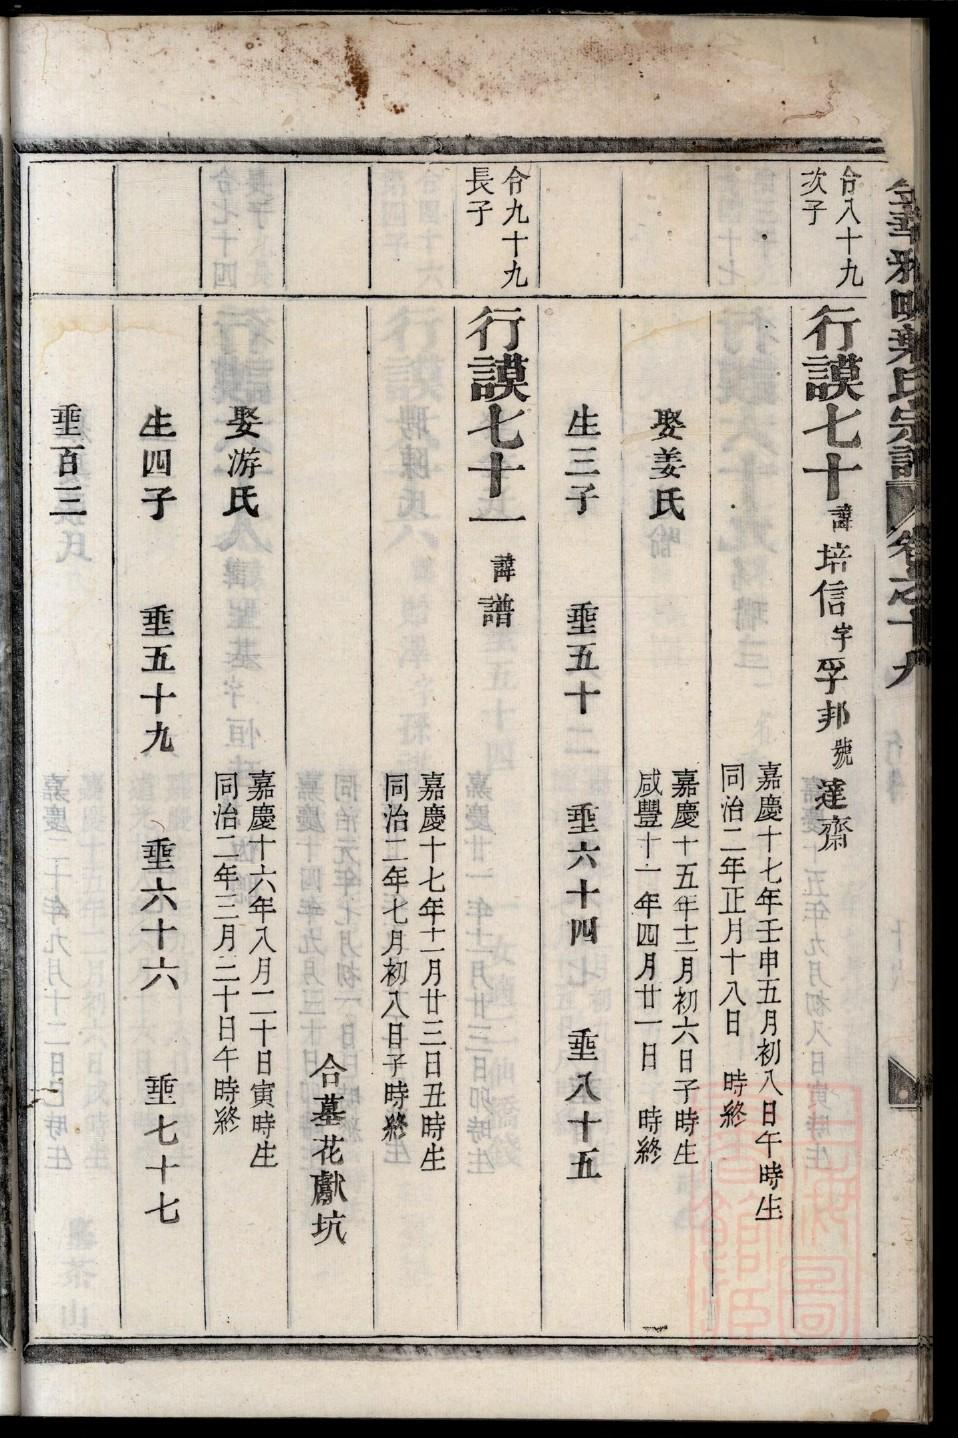 金華雅畈葉氏宗譜 卷之十九
令八十九
次子
行謨七十 諱培信字孚邦號蓬齋
嘉慶十七年壬申五月初八日午時生
同治二年正月十八日 時終
娶姜氏
嘉慶十五年十二月初六日子時生
咸豐十一年四月廿一日 時終
生三子 垂五十二 垂六十四 垂八十五
令九十九
長子
行謨七十一 諱譜
嘉慶十七年十一月廿三日丑時生
同治二年七月初八日子時終
合墓花獻坑
娶游氏
嘉慶十六年八月二十日寅時生
同治二年三月二十日午時終
生四子 垂五十九 垂六十六 垂七十七
垂百三